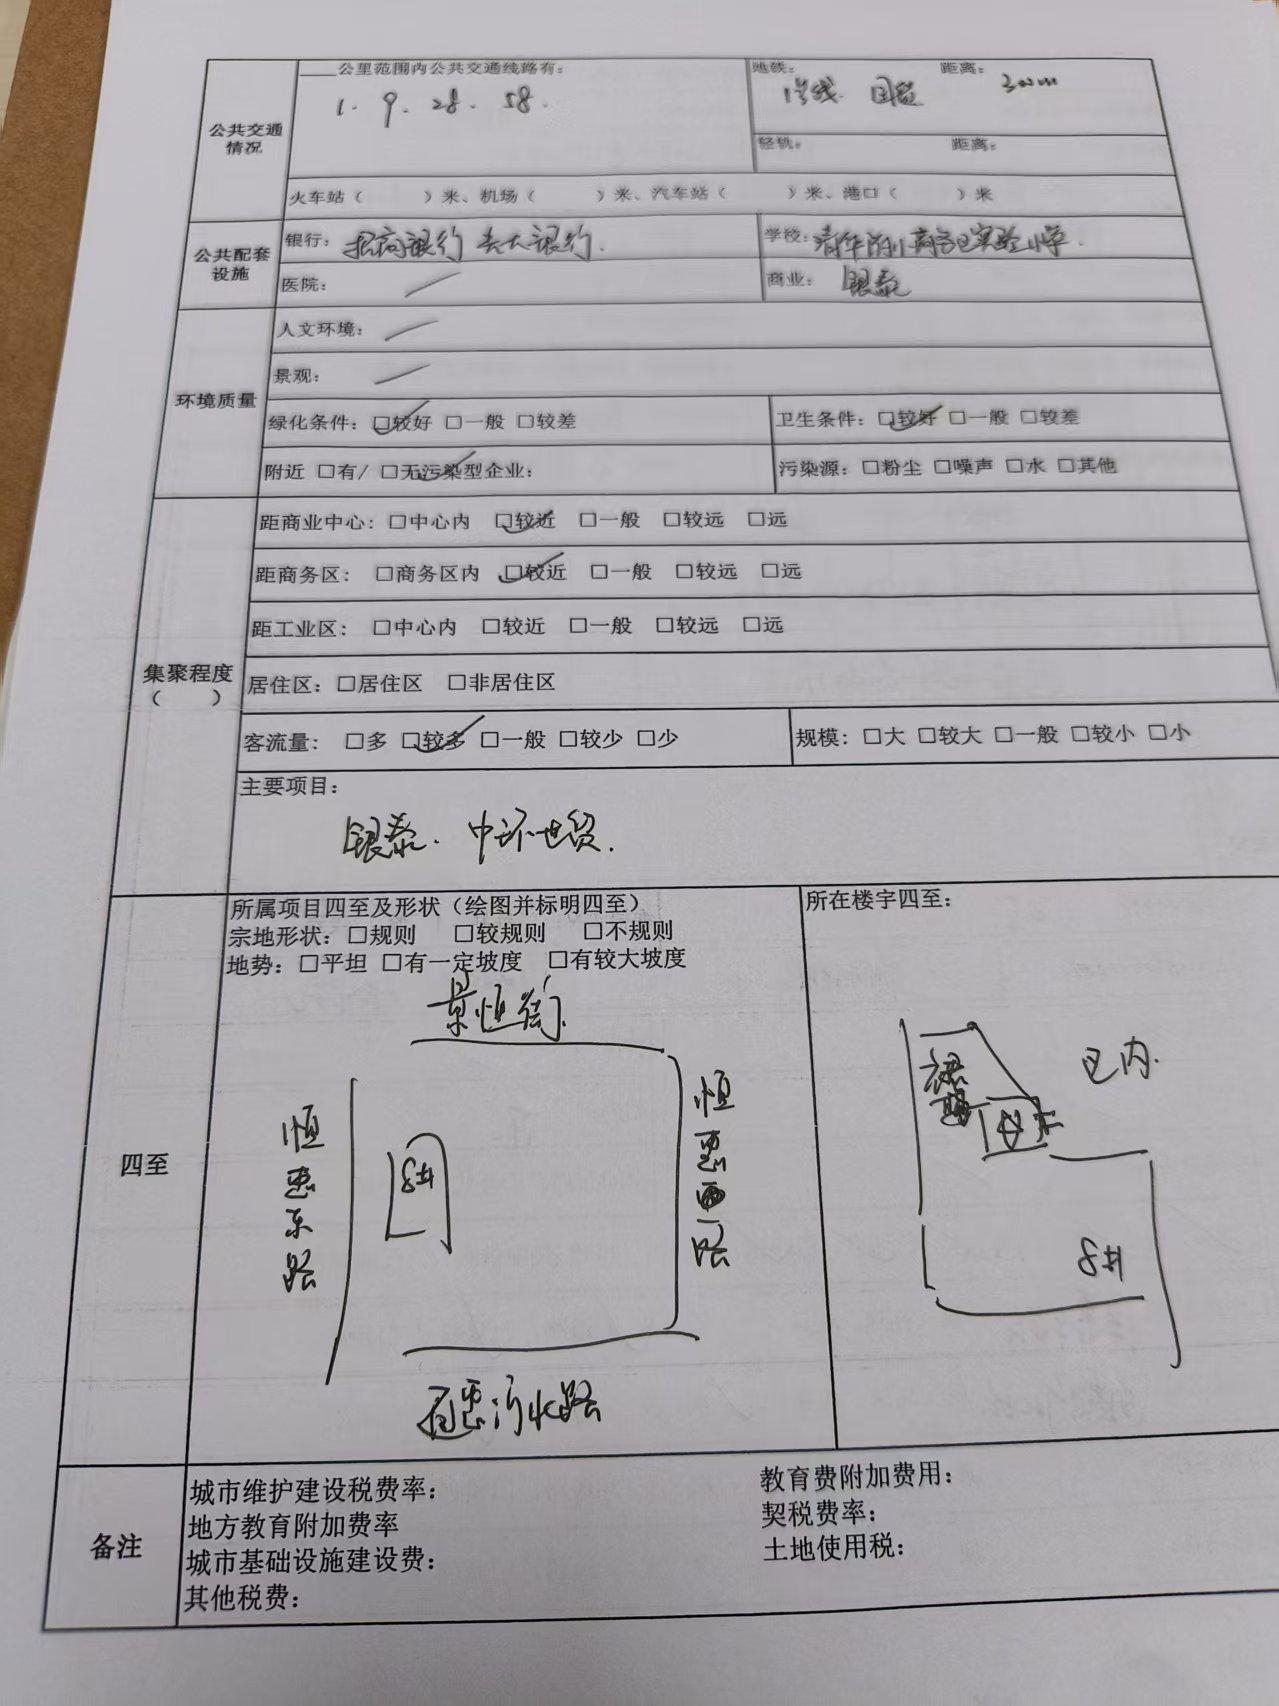 公里范围内公共交通线路有：
1. 9. 28. 58.
地铁： 距离：
1号线 国贸 300m
公共交通情况
轻轨： 距离：
火车站（ ）米、机场（ ）米、汽车站（ ）米、港口（ ）米
公共配套设施
银行：招商银行 光大银行.
学校：清华附小商务区实验小学.
医院：/
商业：银泰
环境质量
人文环境：/
景观：/
绿化条件：☑较好 □一般 □较差
卫生条件：☑较好 □一般 □较差
附近 □有/ ☑无污染型企业：
污染源：□粉尘 □噪声 □水 □其他
集聚程度
（ ）
距商业中心：□中心内 ☑较近 □一般 □较远 □远
距商务区： □商务区内 ☑较近 □一般 □较远 □远
距工业区： □中心内 □较近 □一般 □较远 □远
居住区：□居住区 □非居住区
客流量： □多 ☑较多 □一般 □较少 □少
规模：□大 □较大 □一般 □较小 □小
主要项目：
银泰. 中环世贸.
四至
所属项目四至及形状（绘图并标明四至）
宗地形状：□规则 □较规则 □不规则
地势：□平坦 □有一定坡度 □有较大坡度
景恒街
恒惠东路
8#
恒惠西路
所在楼宇四至：
区内.
8#
备注
城市维护建设税费率：
教育费附加费用：
地方教育附加费率
契税费率：
城市基础设施建设费：
土地使用税：
其他税费：